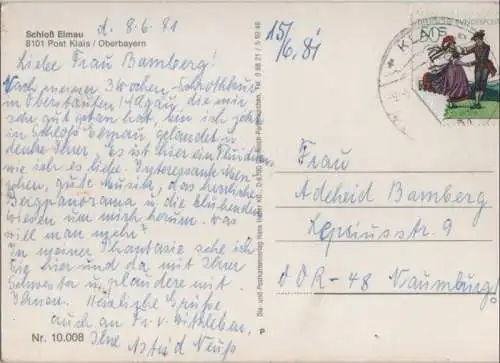 Schloß Elmau
8101 Post Klais / Oberbayern
d. 8.6.81
Liebe Frau Bamberg!
Nach meiner 3 Wochen-Schrothkur
in Oberstaufen Allgäu, die mir
sehr gut getan hat, bin ich jetzt
im Schloß Elmau gelandet u.
denke Ihrer. Es ist hier ein Fluidum
wie sehr es liebe. Interessante Men-
schen, gute Musik, das herrliche
Bergpanorama u. die blühenden
Wiesen um mich herum. Was
will man mehr?
In meiner Phantasie sehe ich
Sie hier und da mit Ihrer
Schwester u. plaudere mit
Ihnen. Herzliche Grüße
auch an Fr. v. Wittleben,
Ihre Astrid Neuß
Nr. 10.008
Die- und Postkartenverlag Hans Huber KG, Garmisch-Partenkirchen, Tel. 0 88 21 / 5 92 46
P
15/6.81
KLAIS
DEUTSCHE BUNDESPOST
Frau
Adelheid Bamberg
Lepsiusstr. 9
DDR-48 Naumburg